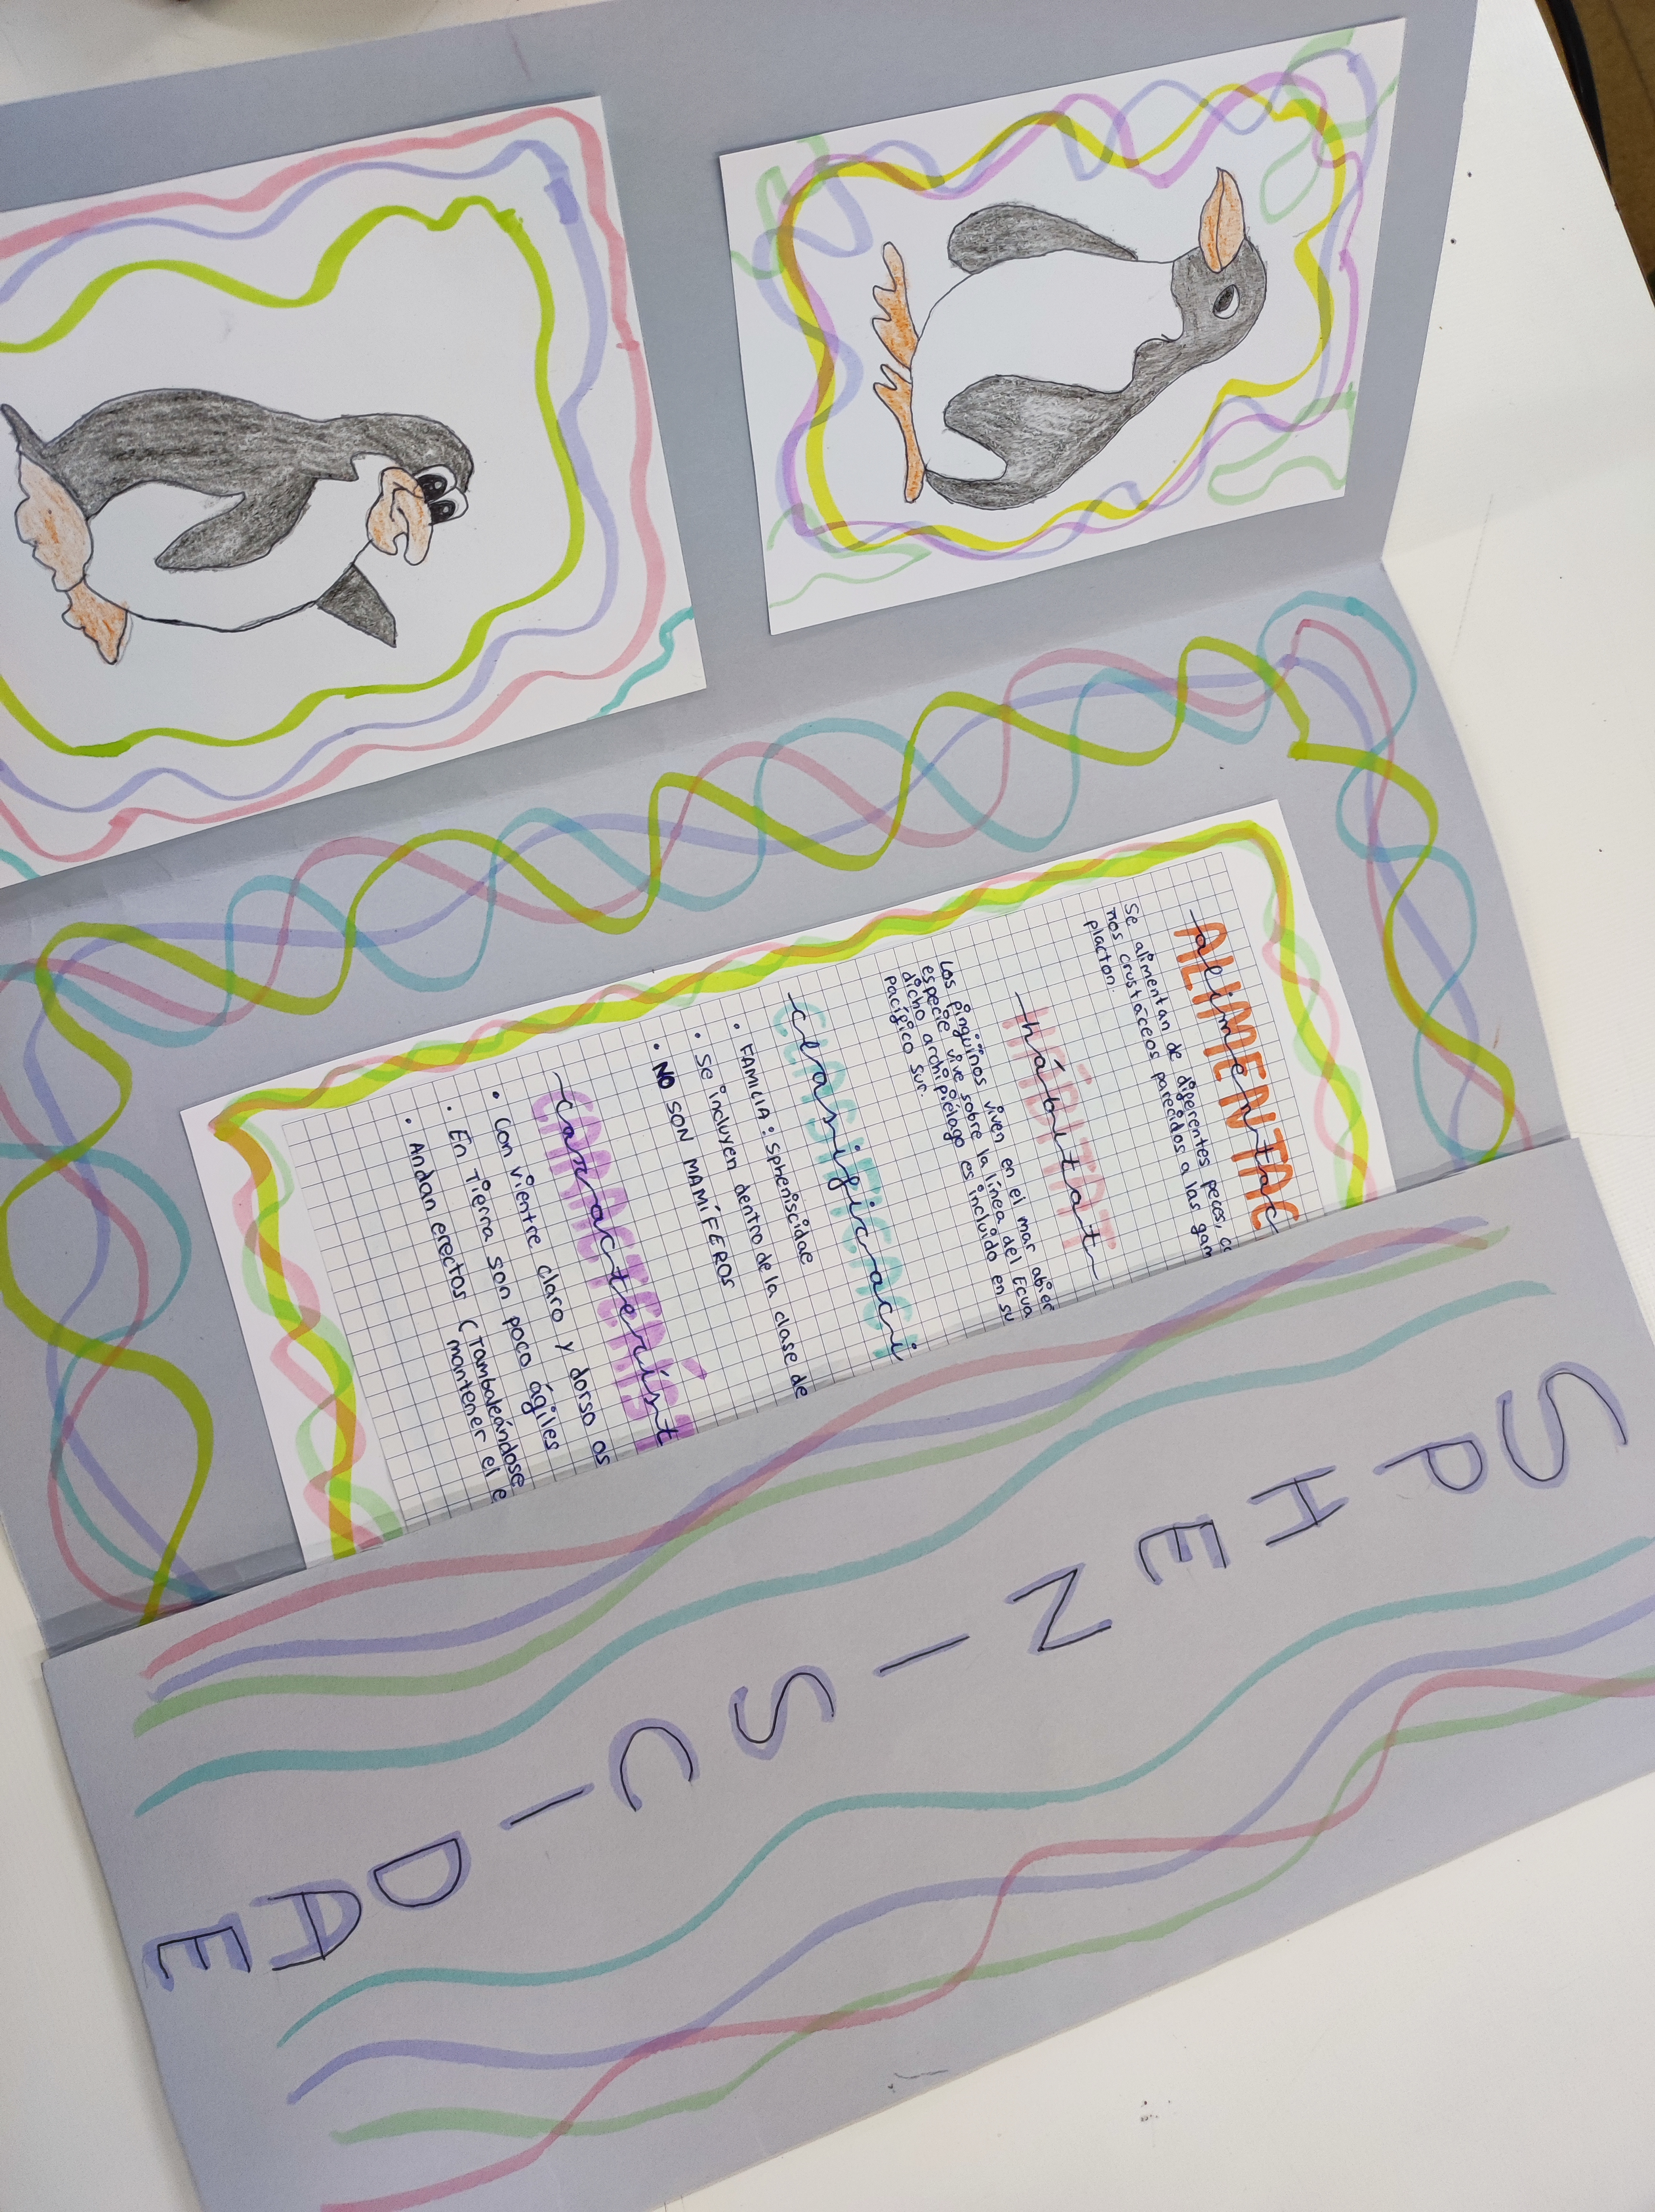 ALIMENTAC
alimentac
Se alimentan de diferentes peces,
nos crustáceos parecidos a las gam
placton.
HÁBITAT
hábitat
Los pingüinos viven en el mar abier
especie vive sobre la línea del Ecua
dicho archipiélago es incluido en su
pacífico sur.
CLASIFICACI
clasificaci
• FAMILIA: Spheniscidae
• Se incluyen dentro de la clase de
• NO SON MAMÍFEROS
CARACTERÍST
característ
• Con vientre claro y dorso os
• En tierra son poco ágiles
• Andan erectos (Tambaleándose
mantener el e
SPHENISCIDAE